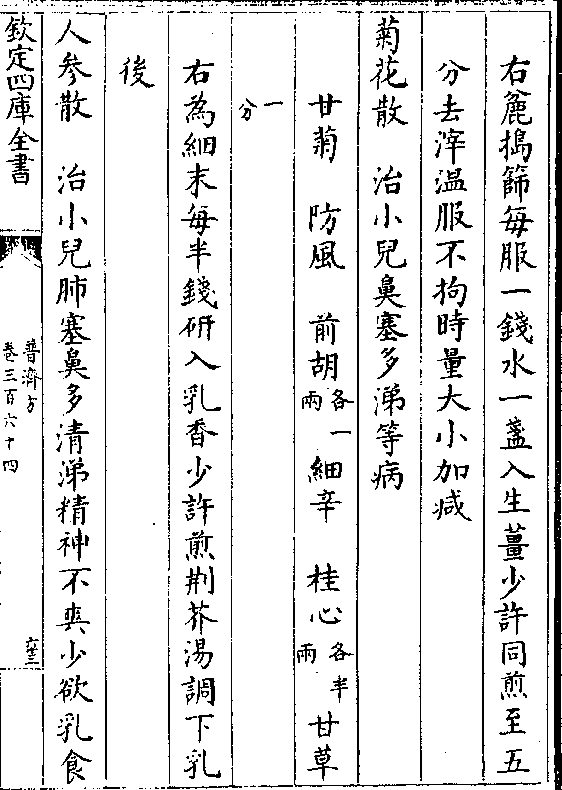 右麄搗篩每服一錢水一盞入生薑少許同煎至五
分去滓温服不拘時量大小加减
菊花散　治小兒鼻塞多涕等病
甘菊　防風　前胡各一兩　細辛　桂心各半兩　甘草
一分
右為細末每半錢研入乳香少許煎荆芥湯調下乳
後
人參散　治小兒肺塞鼻多清涕精神不爽少欲乳食
欽定四庫全書
普濟方
卷三百六十四